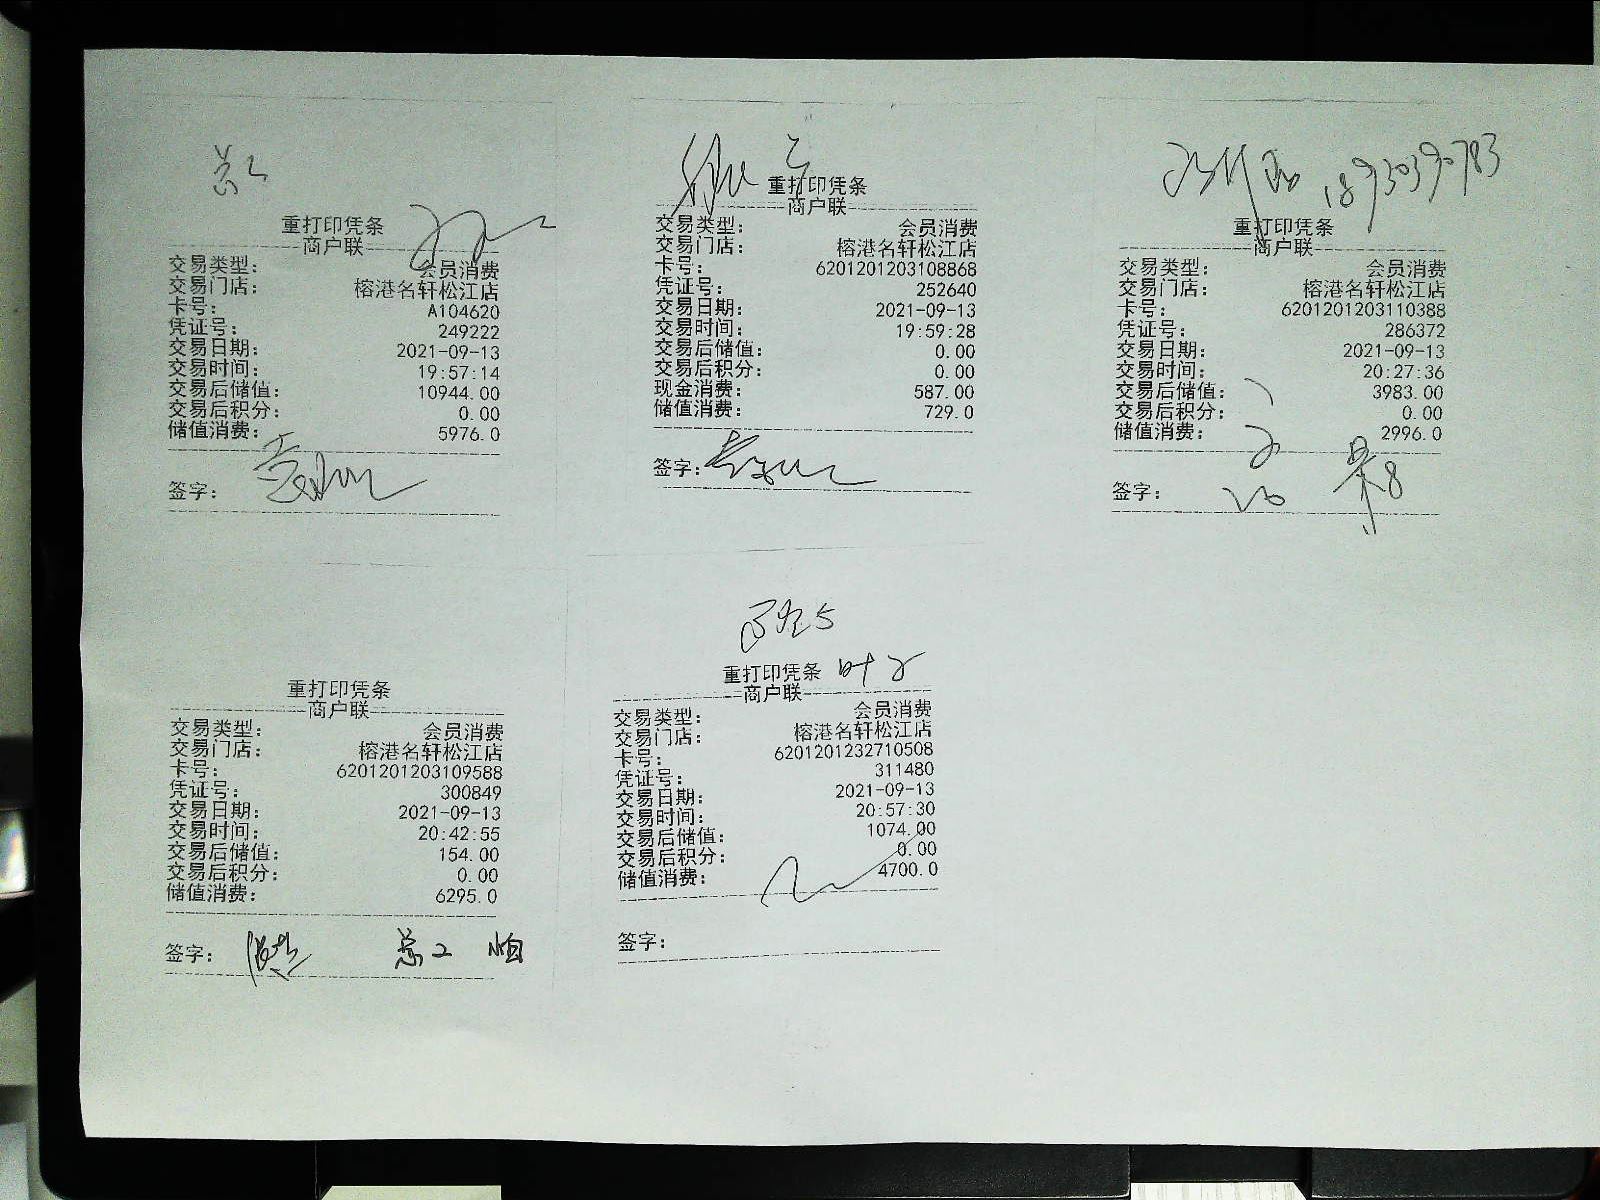 重打印凭条
商户联
交易类型： 会员消费
交易门店： 榕港名轩松江店
卡号： A104620
凭证号： 249222
交易日期： 2021-09-13
交易时间： 19:57:14
交易后储值： 10944.00
交易后积分： 0.00
储值消费： 5976.0
签字：
重打印凭条
商户联
交易类型： 会员消费
交易门店： 榕港名轩松江店
卡号： 6201201203108868
凭证号： 252640
交易日期： 2021-09-13
交易时间： 19:59:28
交易后储值： 0.00
交易后积分： 0.00
现金消费： 587.00
储值消费： 729.0
签字：
18930390783
重打印凭条
商户联
交易类型： 会员消费
交易门店： 榕港名轩松江店
卡号： 6201201203110388
凭证号： 286372
交易日期： 2021-09-13
交易时间： 20:27:36
交易后储值： 3983.00
交易后积分： 0.00
储值消费： 2996.0
签字：
重打印凭条
商户联
交易类型： 会员消费
交易门店： 榕港名轩松江店
卡号： 6201201203109588
凭证号： 300849
交易日期： 2021-09-13
交易时间： 20:42:55
交易后储值： 154.00
交易后积分： 0.00
储值消费： 6295.0
签字：
重打印凭条
商户联
交易类型： 会员消费
交易门店： 榕港名轩松江店
卡号： 6201201232710508
凭证号： 311480
交易日期： 2021-09-13
交易时间： 20:57:30
交易后储值： 1074.00
交易后积分： 0.00
储值消费： 4700.0
签字：